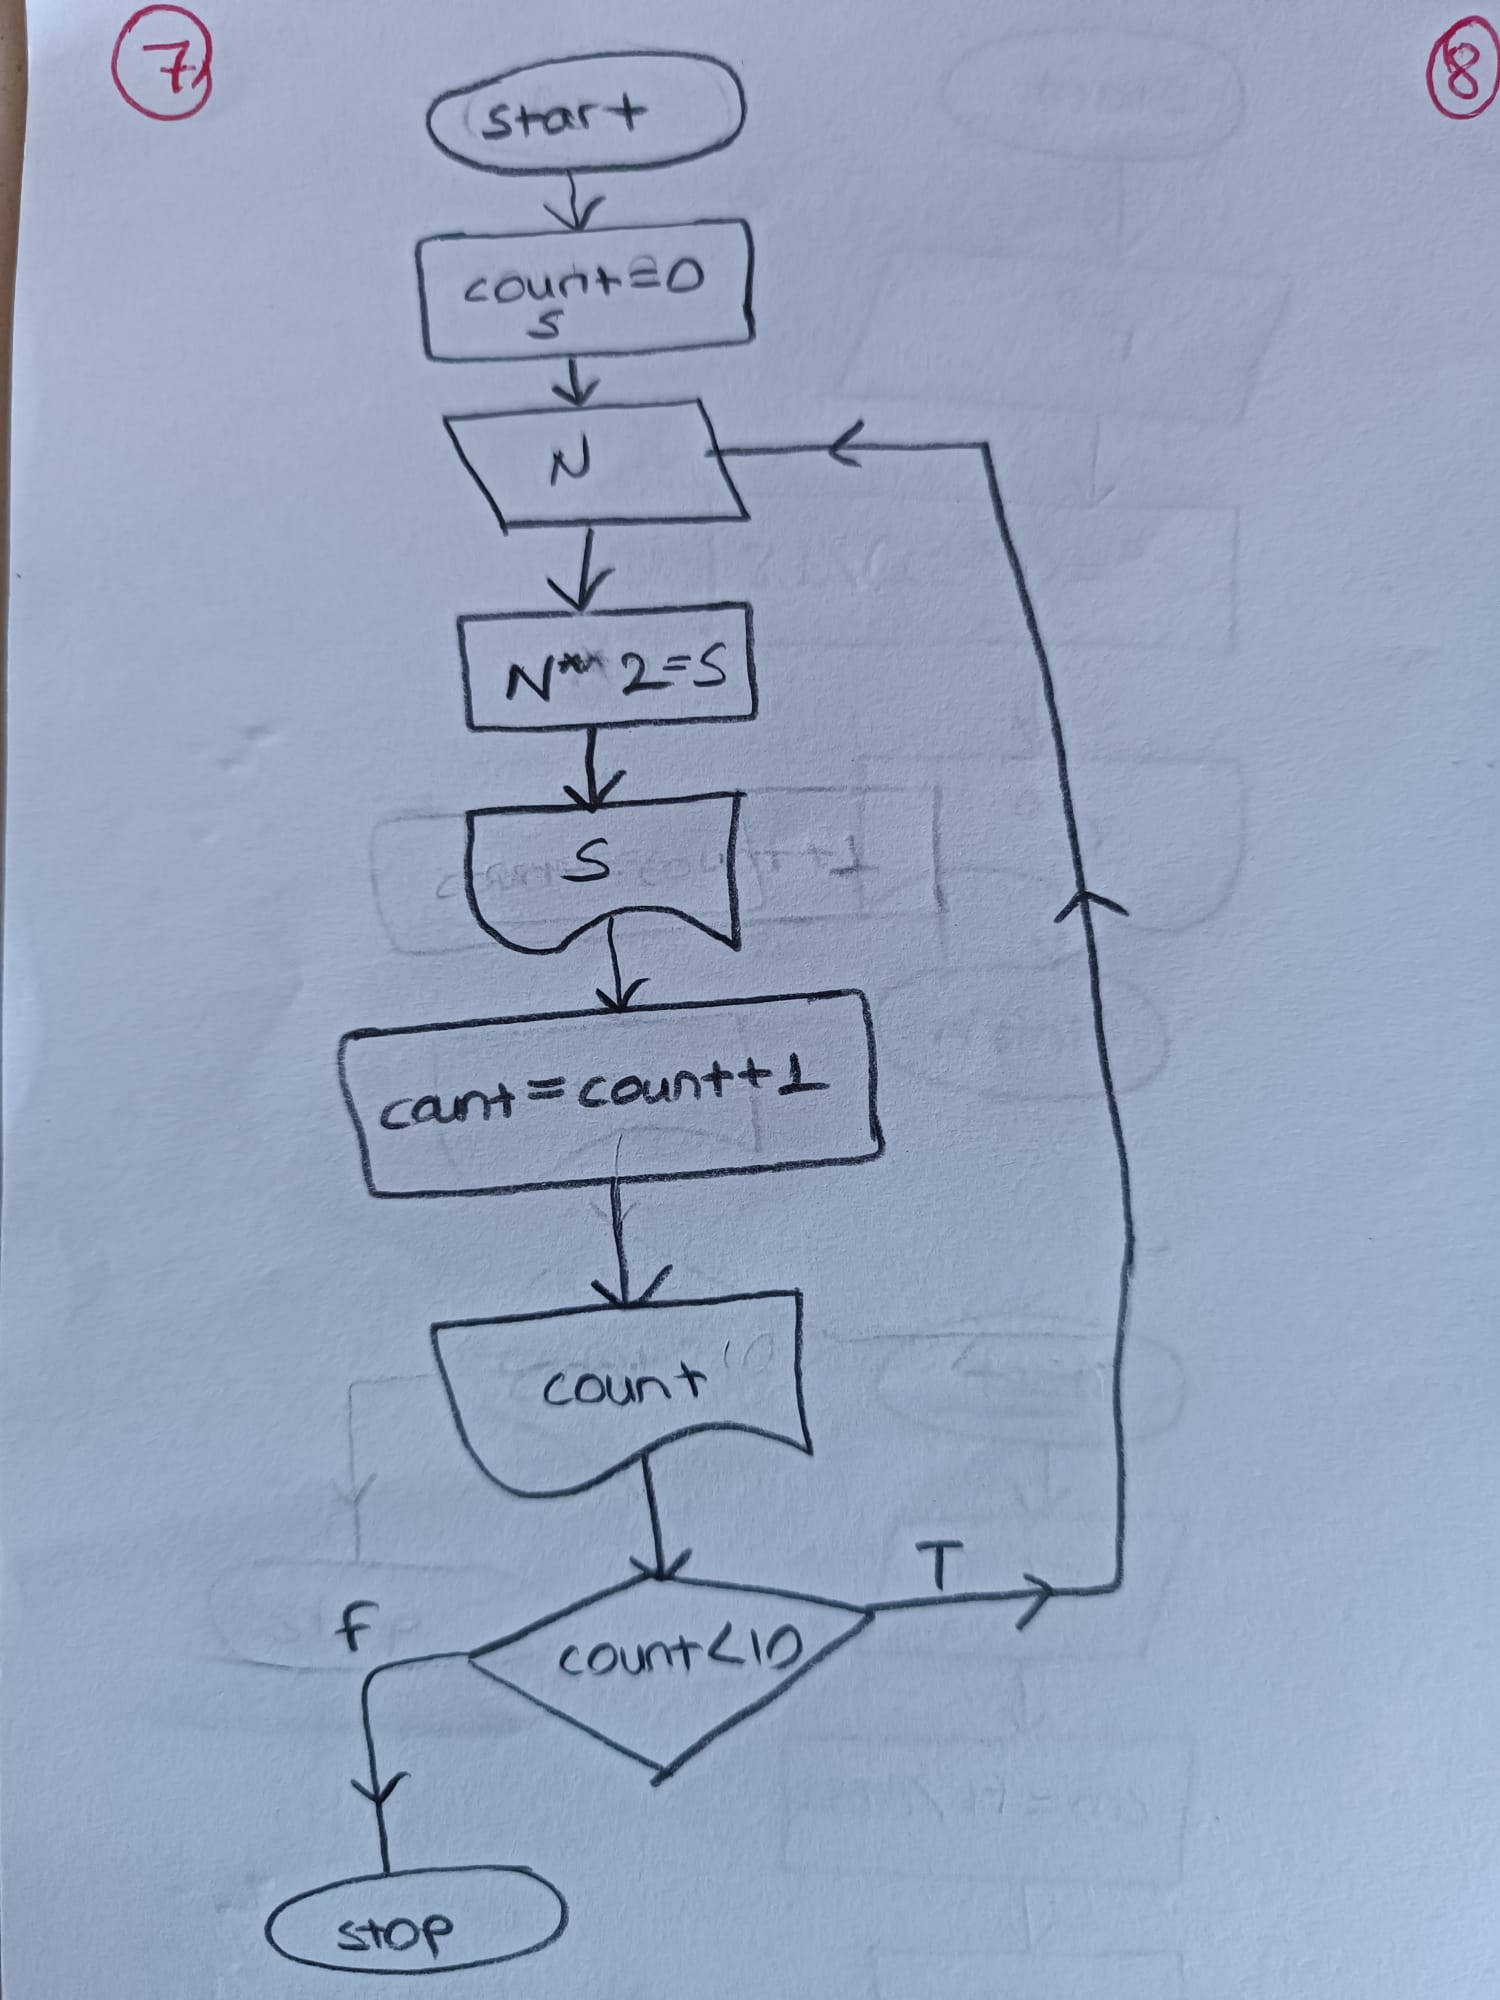 7
8
start
count=0
S
N
N** 2=S
S
cant=count+1
count
T
f
count<10
stop